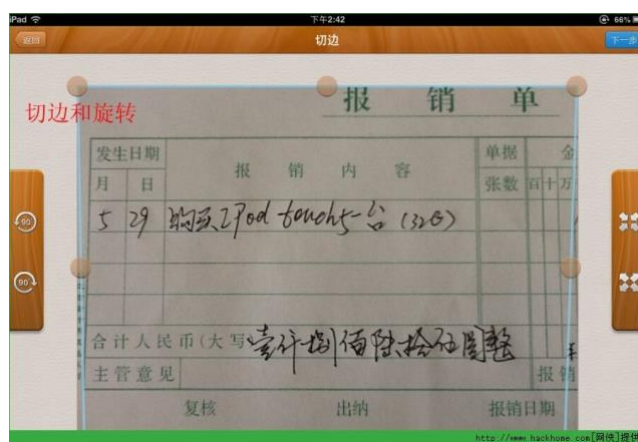 iPad 下午2:42 66%
返回 切边 下一步
切边和旋转
报 销 单
发生日期 报 销 内 容 单据 金
月 日 张数 百 十 万
5 29 购买iPod touch5一台 (32G)
90
90
合计人民币(大写 壹仟捌佰陆拾伍圆整
主管意见 报销
复核 出纳 报销日期
http://www.hackhome.com[网侠]提供